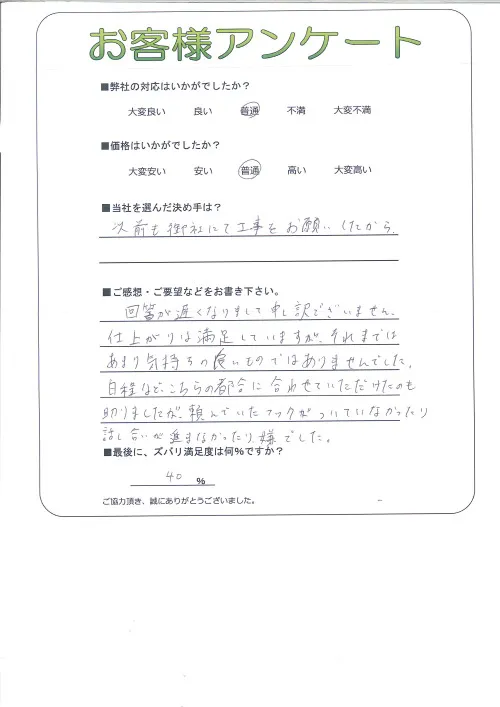 お客様アンケート
■弊社の対応はいかがでしたか？
大変良い 良い 普通 不満 大変不満
■価格はいかがでしたか？
大変安い 安い 普通 高い 大変高い
■当社を選んだ決め手は？
次前も御社にて工事をお願いしたから.
■ご感想・ご要望などをお書き下さい。
回答が遅くなりまして申し訳でざいません.
仕上がりは満足していますが、それまでは
あまり気持ちの良いものではありませんでした。
日程など、こちらの都合に合わせていただけたのも
助りましたが、頼んでいたフックがついていなかったり
話し合いが進まなかったり、嫌でした。
■最後に、ズバリ満足度は何%ですか？
40 %
ご協力頂き、誠にありがとうございました。